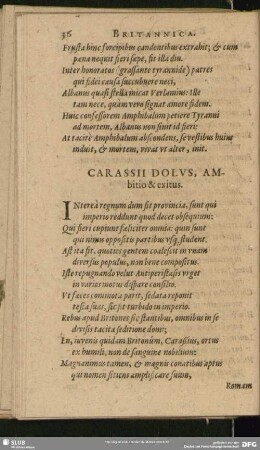 36 BRITANNICA.
Frusta hinc forcipibus candentibus extrahit; & cum
pena nequit fieri sepe, fit illa diu.
Inter honoratos (grassante tyrannide) patres
qui fidei causa succubuere neci,
Albanus quasi stella micat Verlamius: Ille
tam nece, quàm vero signat amore fidem.
Huic confessorem Amphibalum petiere Tyranni
ad mortem, Albanus non sinit id fieri:
At tacitè Amphibalum abscondens, se vestibus huius
induit, & mortem, vivat vt alter, init.
CARASSII DOLVS, AM-
bitio & exitus.
INtereà regnum dum sit provincia, sunt qui
imperio reddunt quod decet obsequium;
Qui fieri cupiunt faliciter omnia: quin sunt
qui nimus oppositis partibus vsq; student.
Ast ita fit, quoties gentem coalescit in vnam
diversus populus, non bene compositus.
Iste repugnando velut Antiperistasis vrget
in varios motus dispare consilio.
Vt faces commota parit, sedata reponit
testa suas, sic fit turbado in imperio.
Rebus apud Britones sic stantibus, omnibus in se
diversis tacita seditione domi;
En, iuvenis quidam Britonùm, Carassius, ortus
ex humili, non de sanguine nobilium:
Magnanimus tamen, & magnis conatibus aptus
qui nomen sitiens amplificare suum,
Romam
SLUB
DFG